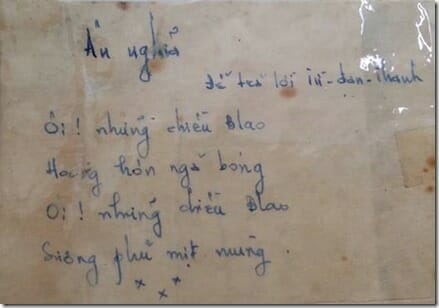 Ân nghĩa
để trả lời
Ôi ! những chiều Blao
Hoàng hôn ngã bóng
Ôi ! những chiều Blao
Sương phủ mịt mùng .